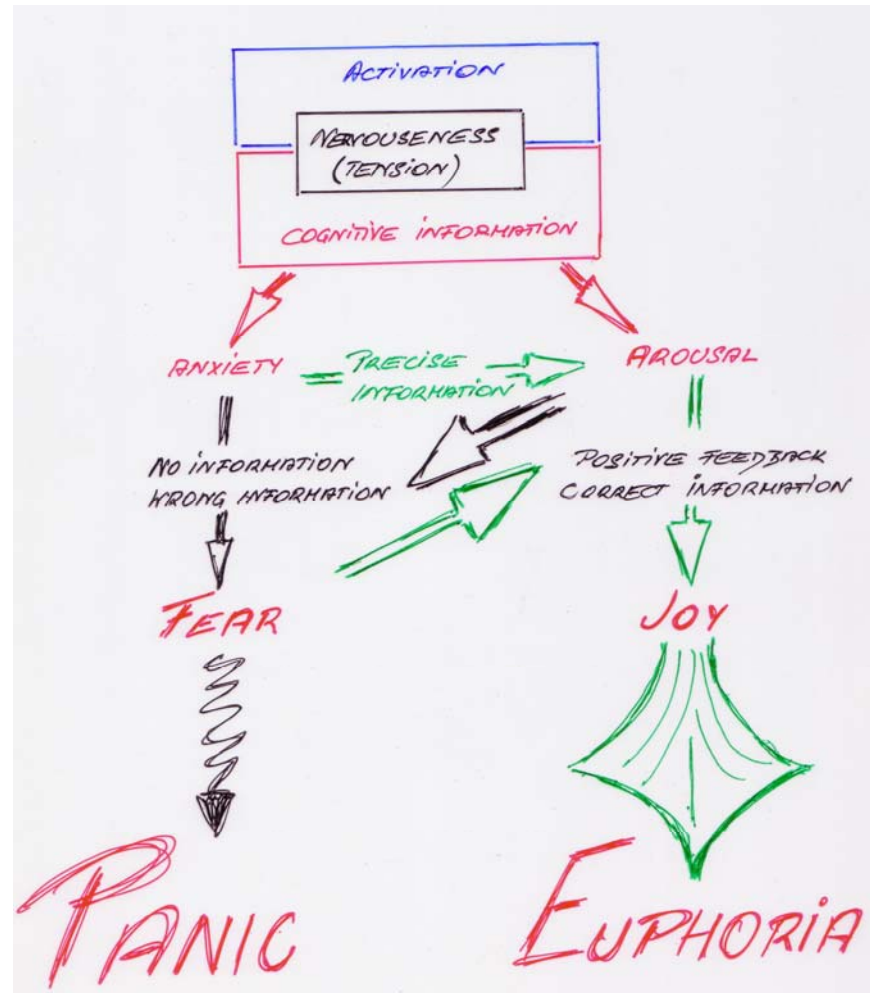 ACTIVATION
NERVOUSENESS
(TENSION)
COGNITIVE INFORMATION
ANXIETY
PRECISE
INFORMATION
AROUSAL
NO INFORMATION
WRONG INFORMATION
POSITIVE FEEDBACK
CORRECT INFORMATION
FEAR
JOY
PANIC
EUPHORIA